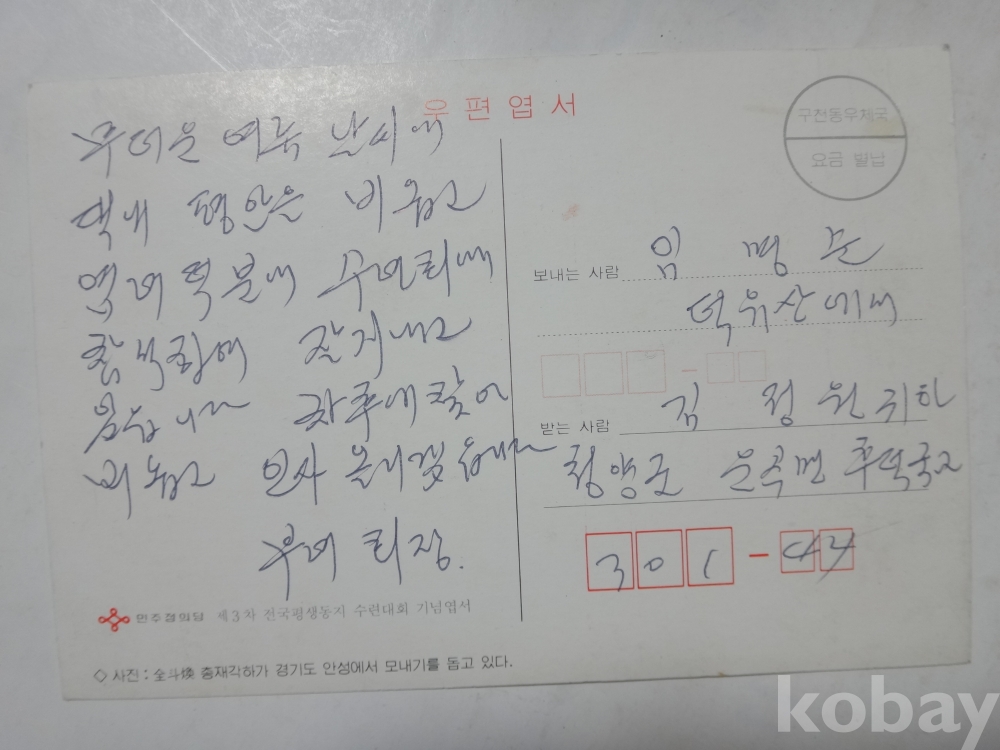 우편엽서
구천동우체국
요금 별납
무더운 여름 날씨에
댁내 평안을 비옵고
염려 덕분에 수련회에
참석하여 잘 지내고
있습니다
뵈옵고 인사 올리겠습니다
부녀 회장.
보내는 사람 임명순
덕유산에서
받는 사람 김정원 귀하
청양군 운곡면 후덕국교
301-44
민주정의당 제3차 전국평생동지 수련대회 기념엽서
◇ 사진 : 全斗煥 총재각하가 경기도 안성에서 모내기를 돕고 있다.
kobay